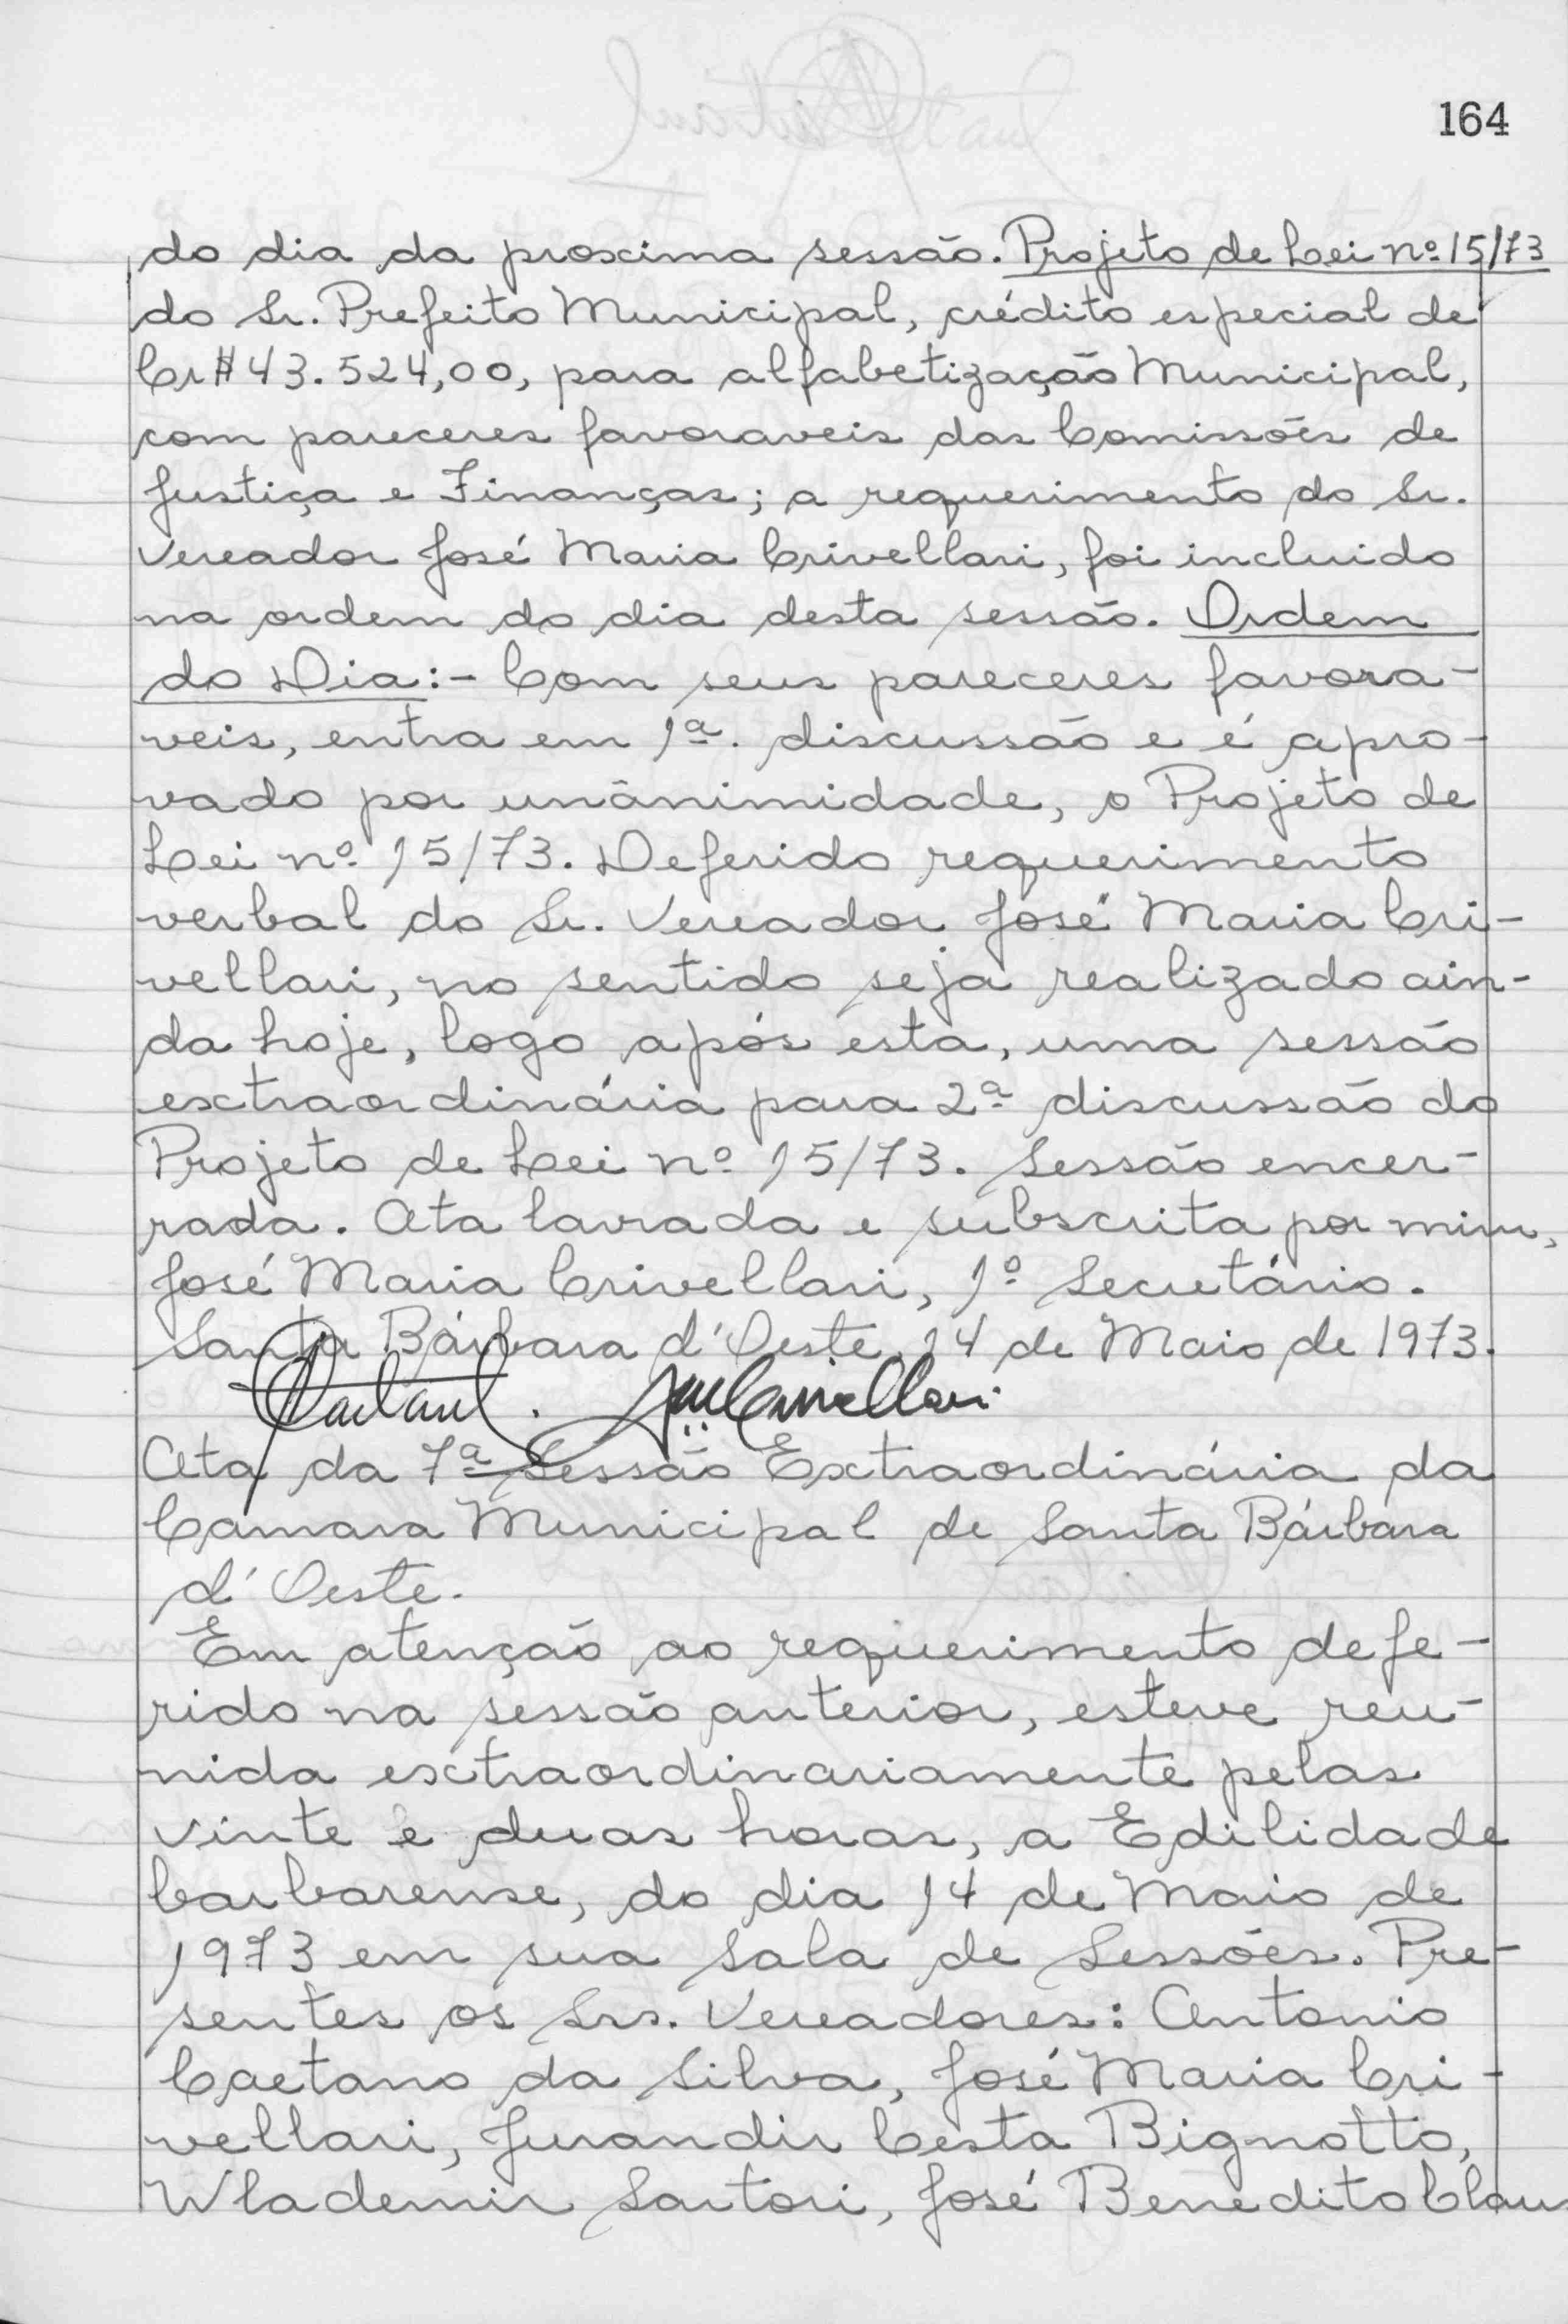 164
do dia da proxima sessão. Projeto de Lei nº 15/73
do Sr. Prefeito Municipal, crédito especial de
Cr$ 43.524,00, para alfabetização Municipal,
com pareceres favoraveis das Comissões de
Justiça e Finanças; a requerimento do Sr.
Vereador José Maria Crivellari, foi incluido
na ordem do dia desta sessão. Ordem
do Dia:- Com seus pareceres favora-
veis, entra em 1ª. discussão e é apro-
vado por unânimidade, o Projeto de
Lei nº 15/73. Deferido requerimento
verbal do Sr. Vereador José Maria Cri-
vellari, no sentido seja realizado ain-
da hoje, logo após esta, uma sessão
extraordinária para 2ª discussão do
Projeto de Lei nº 15/73. Sessão encer-
rada. Ata lavrada e subscrita por mim,
José Maria Crivellari, 1º Secretário.
Santa Bárbara d'Oeste, 14 de Maio de 1973.
Crivellari
Ata da 7ª Sessão Extraordinária da
Camara Municipal de Santa Bárbara
d'Oeste.
Em atenção ao requerimento defe-
rido na sessão anterior, esteve reu-
nida extraordinariamente pelas
vinte e duas horas, a Edilidade
barbarense, do dia 14 de Maio de
1973 em sua Sala de Sessões. Pre-
sentes os Srs. Vereadores: Antonio
Caetano da Silva, José Maria Cri-
vellari, Jurandir Cesta Bignotto,
Wlademir Sartori, José Benedito Clau